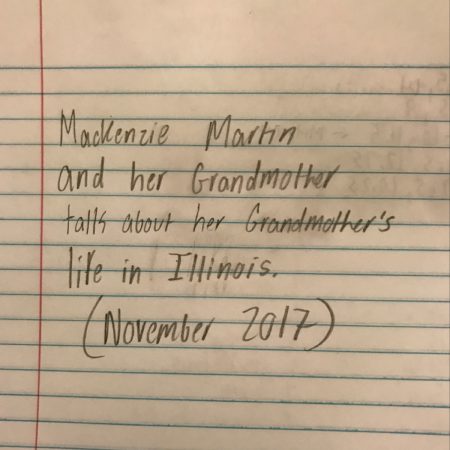 Mackenzie Martin
and her Grandmother
talks about her Grandmother's
life in Illinois.
(November 2017)